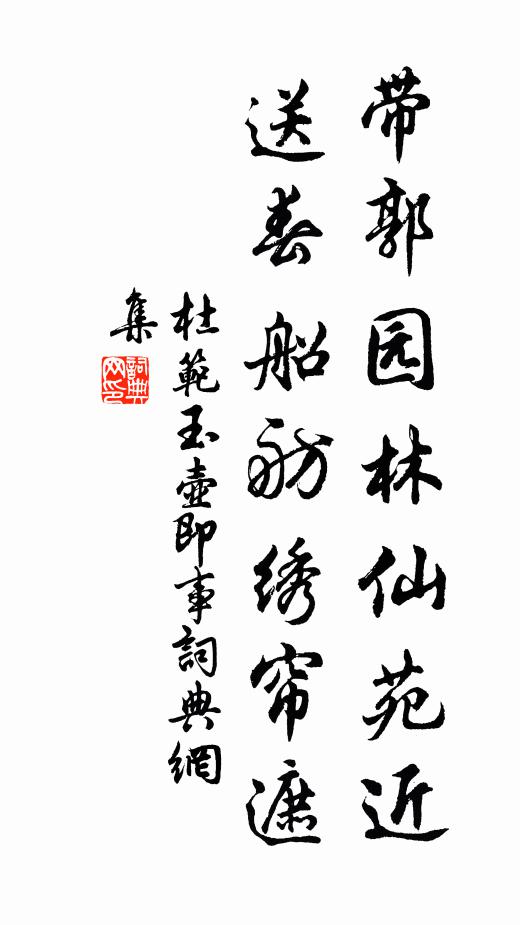 带郭园林仙苑近
送春船舫绣帘遮
杜範玉壺即事詞典網
集
詞典网印